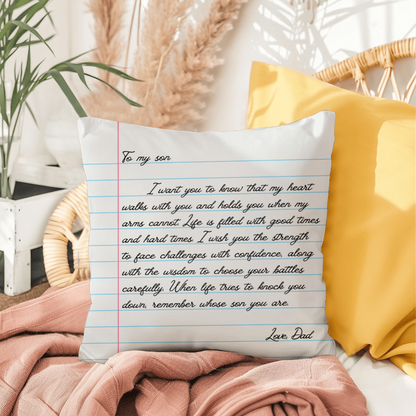 To my son
I want you to know that my heart
walks with you and holds you when my
arms cannot. Life is filled with good times
and hard times. I wish you the strength
to face challenges with confidence, along
with the wisdom to choose your battles
carefully. When life tries to knock you
down, remember whose son you are.
Love, Dad